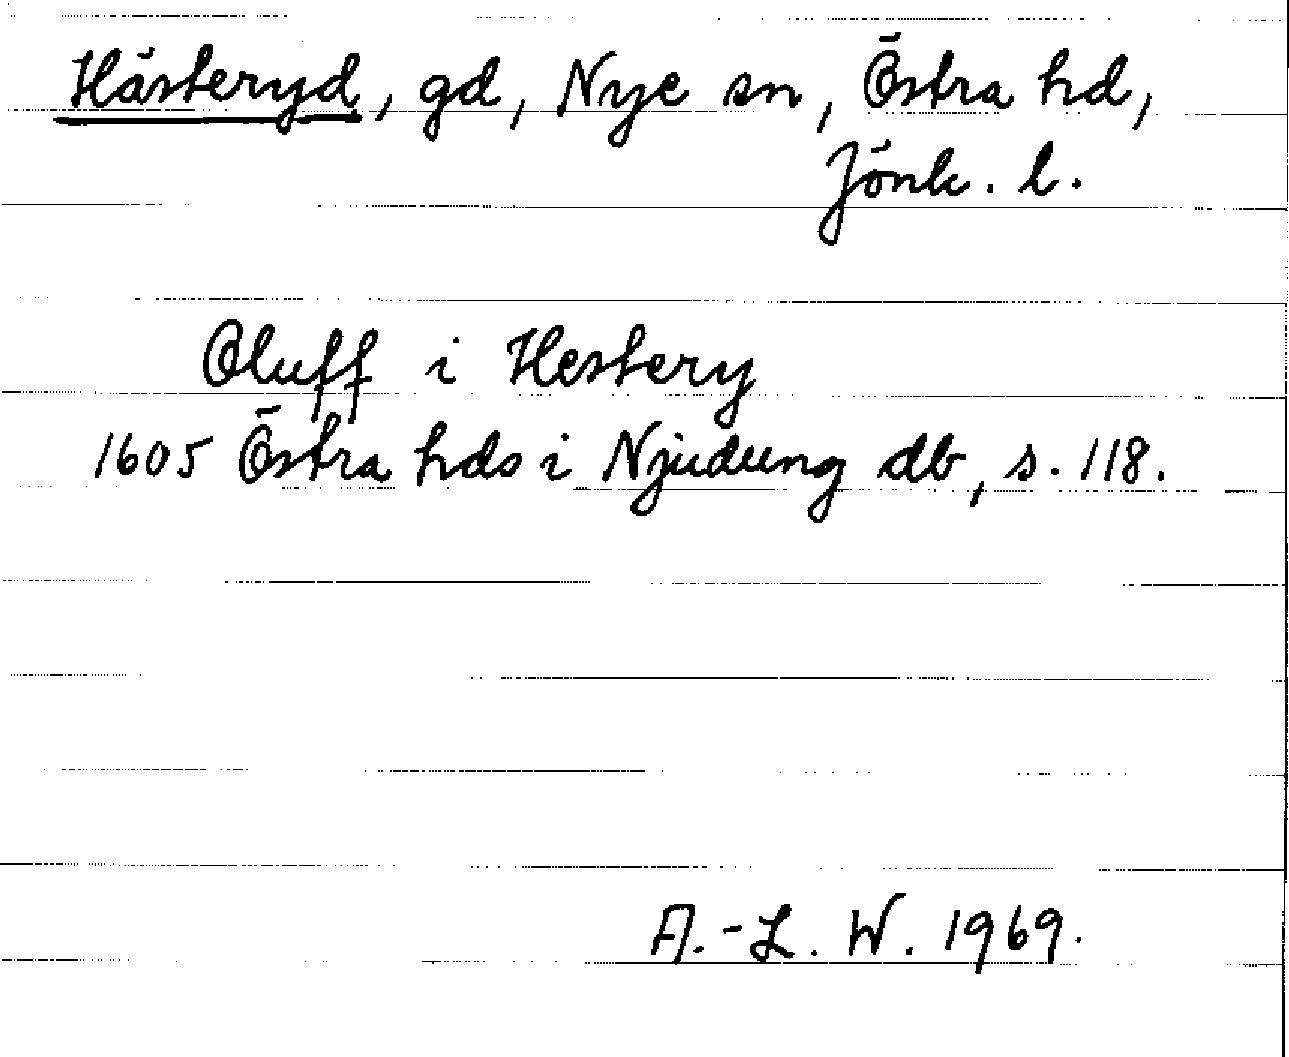 Hästeryd, gd, Nye sn, Östra hd,
Jönk. l.
Oluff i Hestery
1605 Östra hds i Njudung db, s. 118.
A.-L. W. 1969.